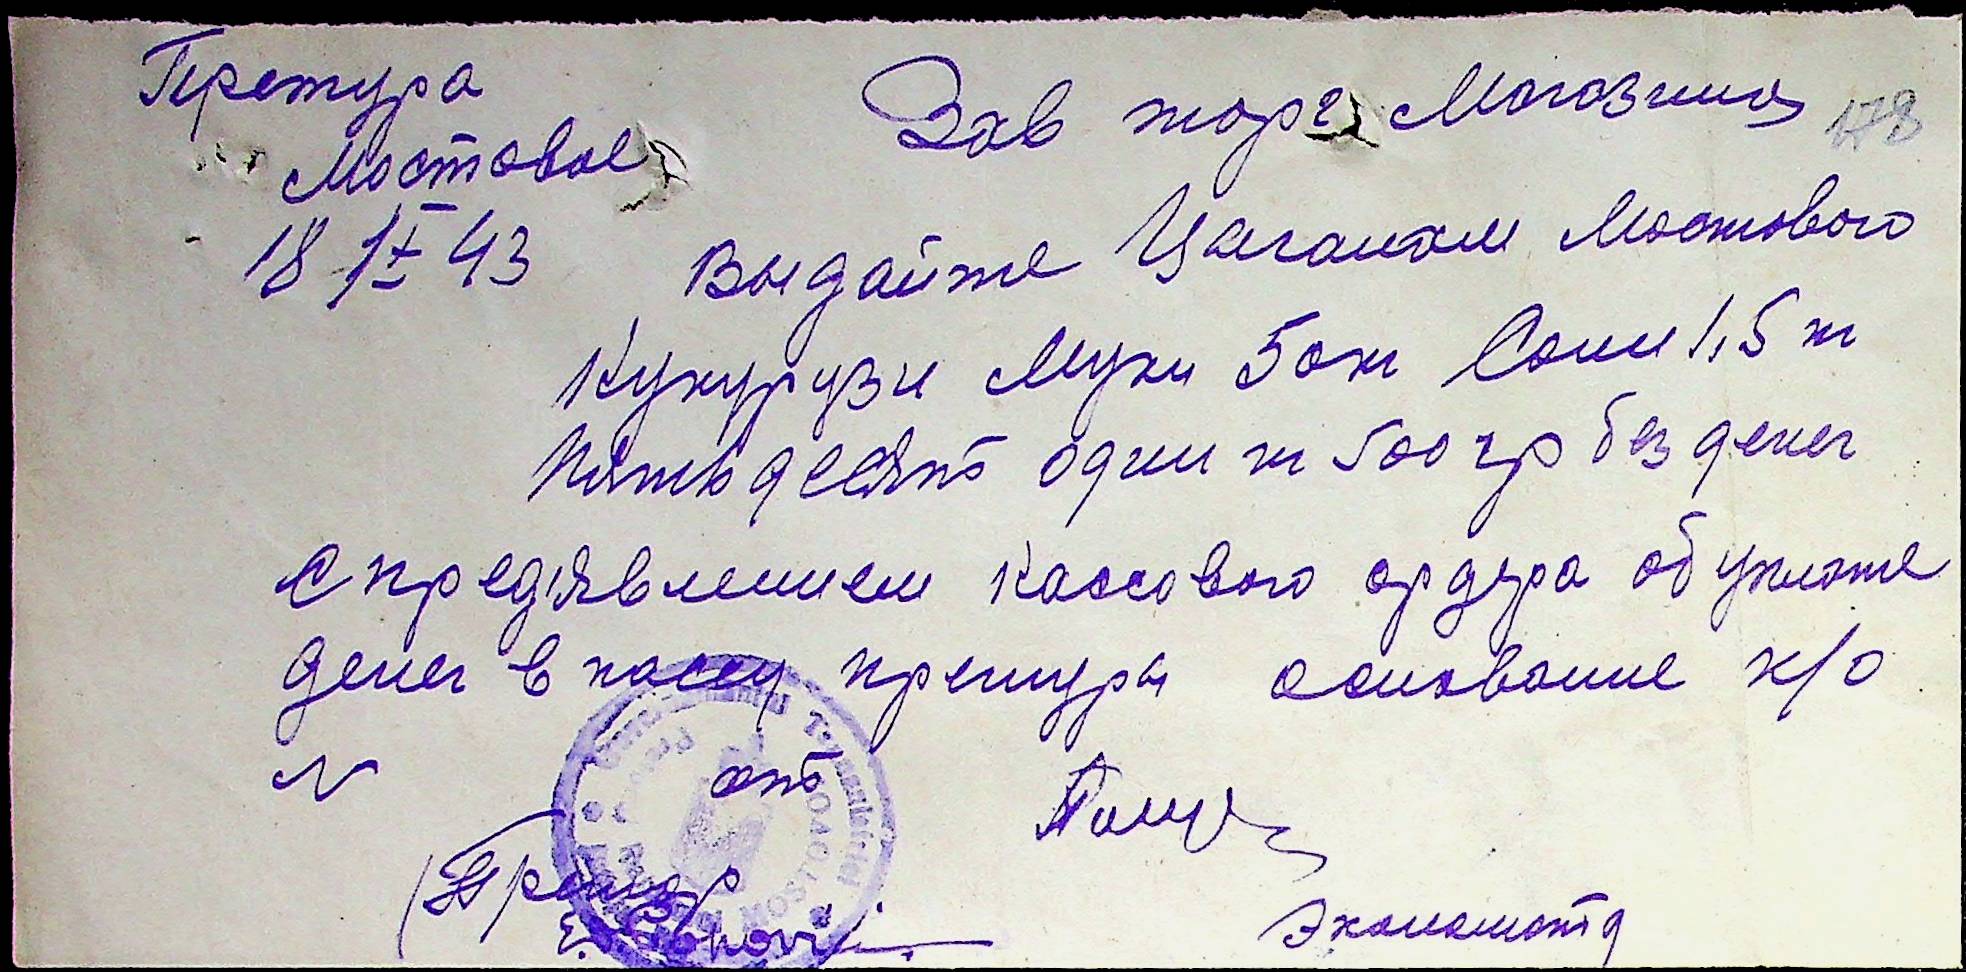 Претура
Мостовое
18 IX 43
178
Зав торг Магазина
Выдайте Цыганам Мостового
Кукурузн Муки 50кг Соли 1,5 кг
Пятьдесять один кг 500 гр без денег
С предявлением кассового ордера об уплате
денег в кассу претуры основание к/о
N от
Претор
Экономотд